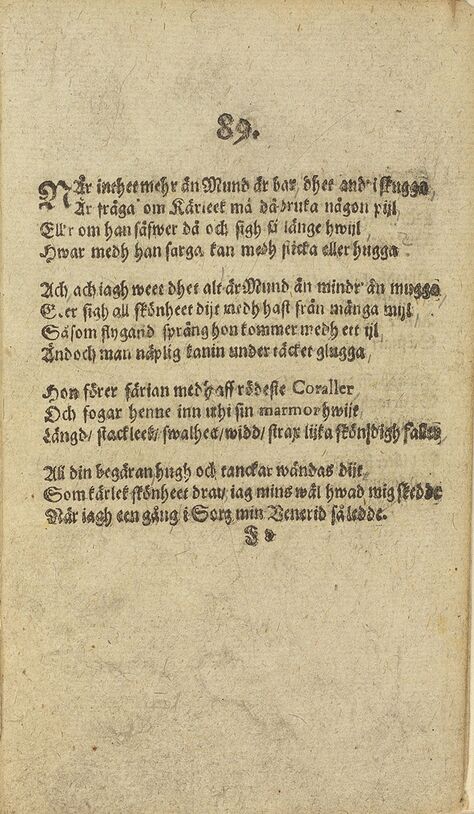 89.
NÄr inthet mehr än Mund är bar, dhet and' i skugga,
Är fråga om Kärleek må då bruka någon pijl,
Ell'r om han säfwer då och sigh så länge hwijl
Hwar medh han sarga kan medh sticka eller hugga
Ach, ach iagh weet dhet alt är Mund än mindr' än mugga,
sigh all skönheet dijt medh hast från många mijl,
Såsom flygand språng hon kommer medh ett ijl,
Ändoch man näplig kan in under täcket glugga,
Hon förer färian medh aff rödeste Coraller
Och fogar henne inn uthi sin marmor hwijt,
Längd/ stackleek/ swalheet/ widd/ strax lijka skönsdigh faller
All din begäran hugh och tanckar wändas dijt,
Som kärlek skönheet drar, iag mins wäl hwad mig skedde
När iagh een gång i Sorg min Venerid så ledde.